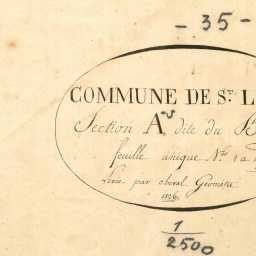 - 35 -
COMMUNE DE St. L
Section A dite du B
feuille unique Nos. 1 a
levée par cheval Géomètre
1826
1
2500